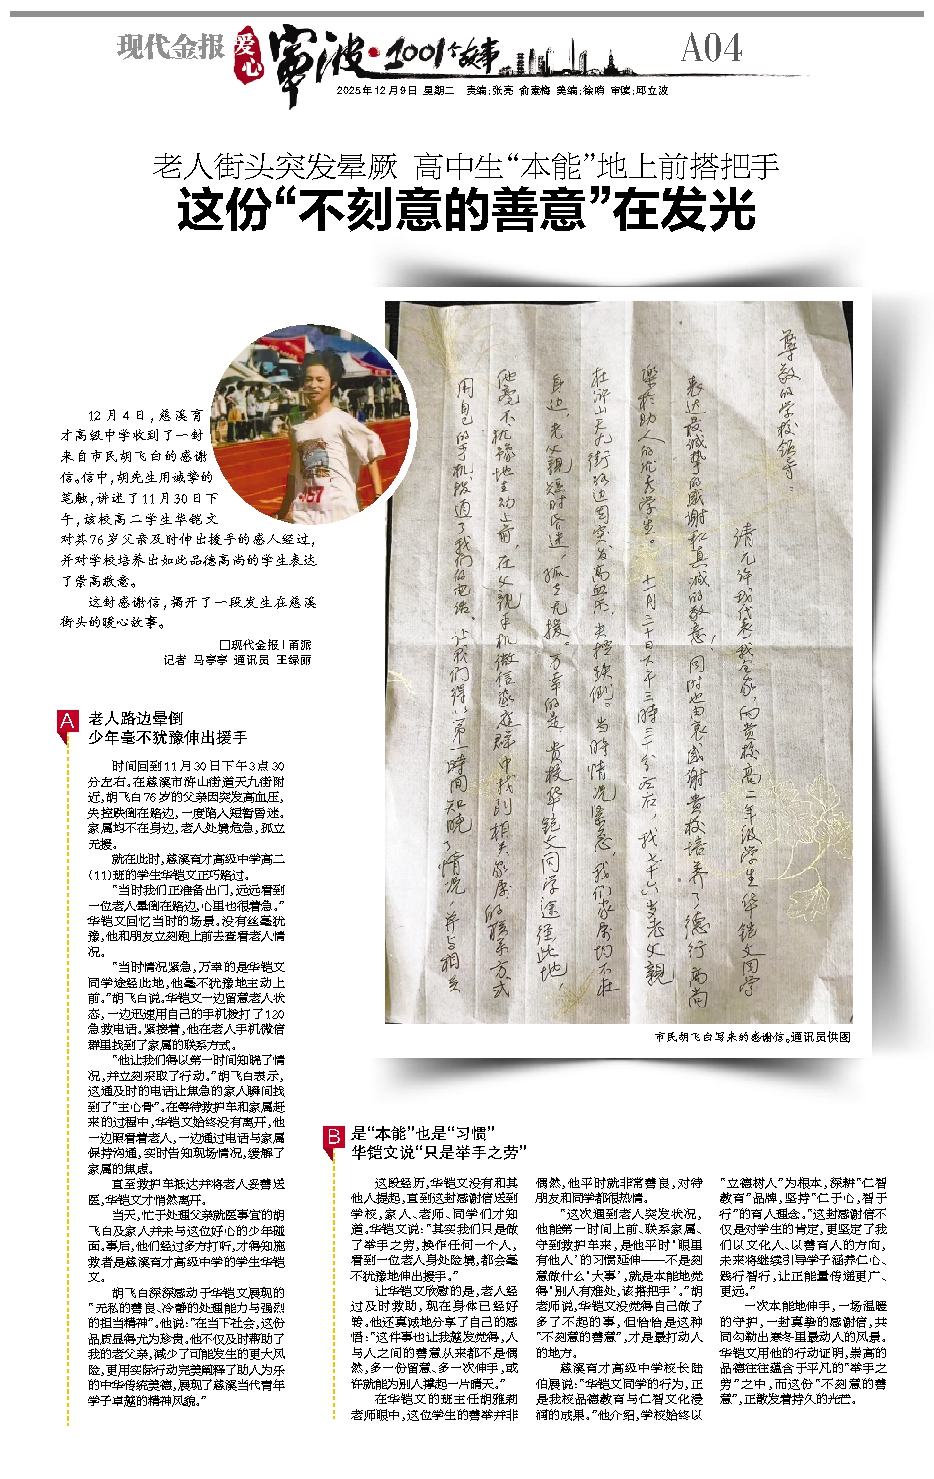 现代金报
爱心
宁波·1001个故事
A04
2025年12月9日 星期二 责编:张亮 俞素梅 美编:徐哨 审读:邱立波
老人街头突发晕厥 高中生“本能”地上前搭把手
这份“不刻意的善意”在发光
12月4日,慈溪育
才高级中学收到了一封
来自市民胡飞白的感谢
信。信中,胡先生用诚挚的
笔触,讲述了11月30日下
午,该校高二学生华铠文
对其76岁父亲及时伸出援手的感人经过,
并对学校培养出如此品德高尚的学生表达
了崇高敬意。
这封感谢信,揭开了一段发生在慈溪
街头的暖心故事。
□现代金报|甬派
记者 马亭亭 通讯员 王绿丽
尊敬的学校领导:
请允许我代表我全家,向贵校高二年级学生华铠文同学
表达最诚挚的感谢和真诚的敬意!同时也由衷感谢贵校培养了德行高尚
乐于助人的优秀学生。十一月三十日下午三时三十分左右,我七十六岁老父親
在浒山天九街路边因突发高血压,失控跌倒。当时情况紧急,我们家属均不在
身边,老父親短时昏迷,孤立无援。万幸的是,贵校华铠文同学途径此地,
他毫不犹豫地主动上前,在父親手机微信家庭群中找到相关家属的联系方式
用自己的手机拨通了我们的电话,让我们得以第一时间知晓了情况,并与相关
市民胡飞白写来的感谢信。通讯员供图
A
老人路边晕倒
少年毫不犹豫伸出援手
时间回到11月30日下午3点30
分左右。在慈溪市浒山街道天九街附
近,胡飞白76岁的父亲因突发高血压,
失控跌倒在路边,一度陷入短暂昏迷。
家属均不在身边,老人处境危急,孤立
无援。
就在此时,慈溪育才高级中学高二
(11)班的学生华铠文正巧路过。
“当时我们正准备出门,远远看到
一位老人晕倒在路边,心里也很着急。”
华铠文回忆当时的场景。没有丝毫犹
豫,他和朋友立刻跑上前去查看老人情
况。
“当时情况紧急,万幸的是华铠文
同学途经此地,他毫不犹豫地主动上
前。”胡飞白说。华铠文一边留意老人状
态,一边迅速用自己的手机拨打了120
急救电话。紧接着,他在老人手机微信
群里找到了家属的联系方式。
“他让我们得以第一时间知晓了情
况,并立刻采取了行动。”胡飞白表示,
这通及时的电话让焦急的家人瞬间找
到了“主心骨”。在等待救护车和家属赶
来的过程中,华铠文始终没有离开,他
一边照看着老人,一边通过电话与家属
保持沟通,实时告知现场情况,缓解了
家属的焦虑。
直至救护车抵达并将老人妥善送
医,华铠文才悄然离开。
当天,忙于处理父亲就医事宜的胡
飞白及家人并未与这位好心的少年碰
面。事后,他们经过多方打听,才得知施
救者是慈溪育才高级中学的学生华铠
文。
胡飞白深深感动于华铠文展现的
“无私的善良、冷静的处理能力与强烈
的担当精神”。他说:“在当下社会,这份
品质显得尤为珍贵。他不仅及时帮助了
我的老父亲,减少了可能发生的更大风
险,更用实际行动完美阐释了助人为乐
的中华传统美德,展现了慈溪当代青年
学子卓越的精神风貌。”
B
是“本能”也是“习惯”
华铠文说“只是举手之劳”
这段经历,华铠文没有和其
他人提起,直到这封感谢信送到
学校,家人、老师、同学们才知
道。华铠文说:“其实我们只是做
了举手之劳,换作任何一个人,
看到一位老人身处险境,都会毫
不犹豫地伸出援手。”
让华铠文欣慰的是,老人经
过及时救助,现在身体已经好
转。他还真诚地分享了自己的感
悟:“这件事也让我越发觉得,人
与人之间的善意从来都不是偶
然,多一份留意、多一次伸手,或
许就能为别人撑起一片晴天。”
在华铠文的班主任胡雅莉
老师眼中,这位学生的善举并非
偶然,他平时就非常善良,对待
朋友和同学都很热情。
“这次遇到老人突发状况,
他能第一时间上前、联系家属、
守到救护车来,是他平时‘眼里
有他人’的习惯延伸——不是刻
意做什么‘大事’,就是本能地觉
得‘别人有难处,该搭把手’。”胡
老师说,华铠文没觉得自己做了
多了不起的事,但恰恰是这种
“不刻意的善意”,才是最打动人
的地方。
慈溪育才高级中学校长陆
伯展说:“华铠文同学的行为,正
是我校品德教育与仁智文化浸
润的成果。”他介绍,学校始终以
“立德树人”为根本,深耕“仁智
教育”品牌,坚持“仁于心,智于
行”的育人理念。“这封感谢信不
仅是对学生的肯定,更坚定了我
们以文化人、以善育人的方向,
未来将继续引导学子涵养仁心、
践行智行,让正能量传递更广、
更远。”
一次本能地伸手,一场温暖
的守护,一封真挚的感谢信,共
同勾勒出寒冬里最动人的风景。
华铠文用他的行动证明,崇高的
品德往往蕴含于平凡的“举手之
劳”之中,而这份“不刻意的善
意”,正散发着持久的光芒。